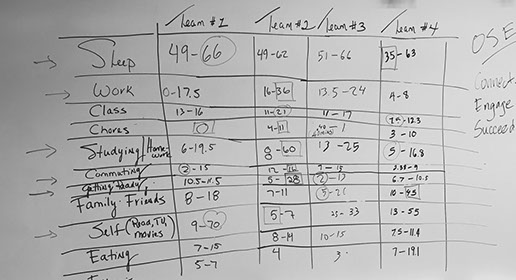 Team #1 Team #2 Team #3 Team #4
Sleep 49-66 49-62 51-66 35-63
Work 0-17.5 16-36 13.5-24 4-8
Class 13-16 11-21 11-17 7.5-12.3
Chores 10 4-11 3-10
Studying/Homework 6-19.5 8-60 13-25 5-16.8
Commuting 2-15 12-16 3.38-9
Getting Ready 10.5-11.5 5-28 2-13 6.7-10.5
Family·Friends 8-18 7-11 5-21 10-45
Self (Read, TV, movies) 9-70 5-7 25-33 13-55
Eating 7-15 8-14 10-15 7.5-11.4
5-7 4 3 7-19.1
OSE
Connect
Engage
Succeed